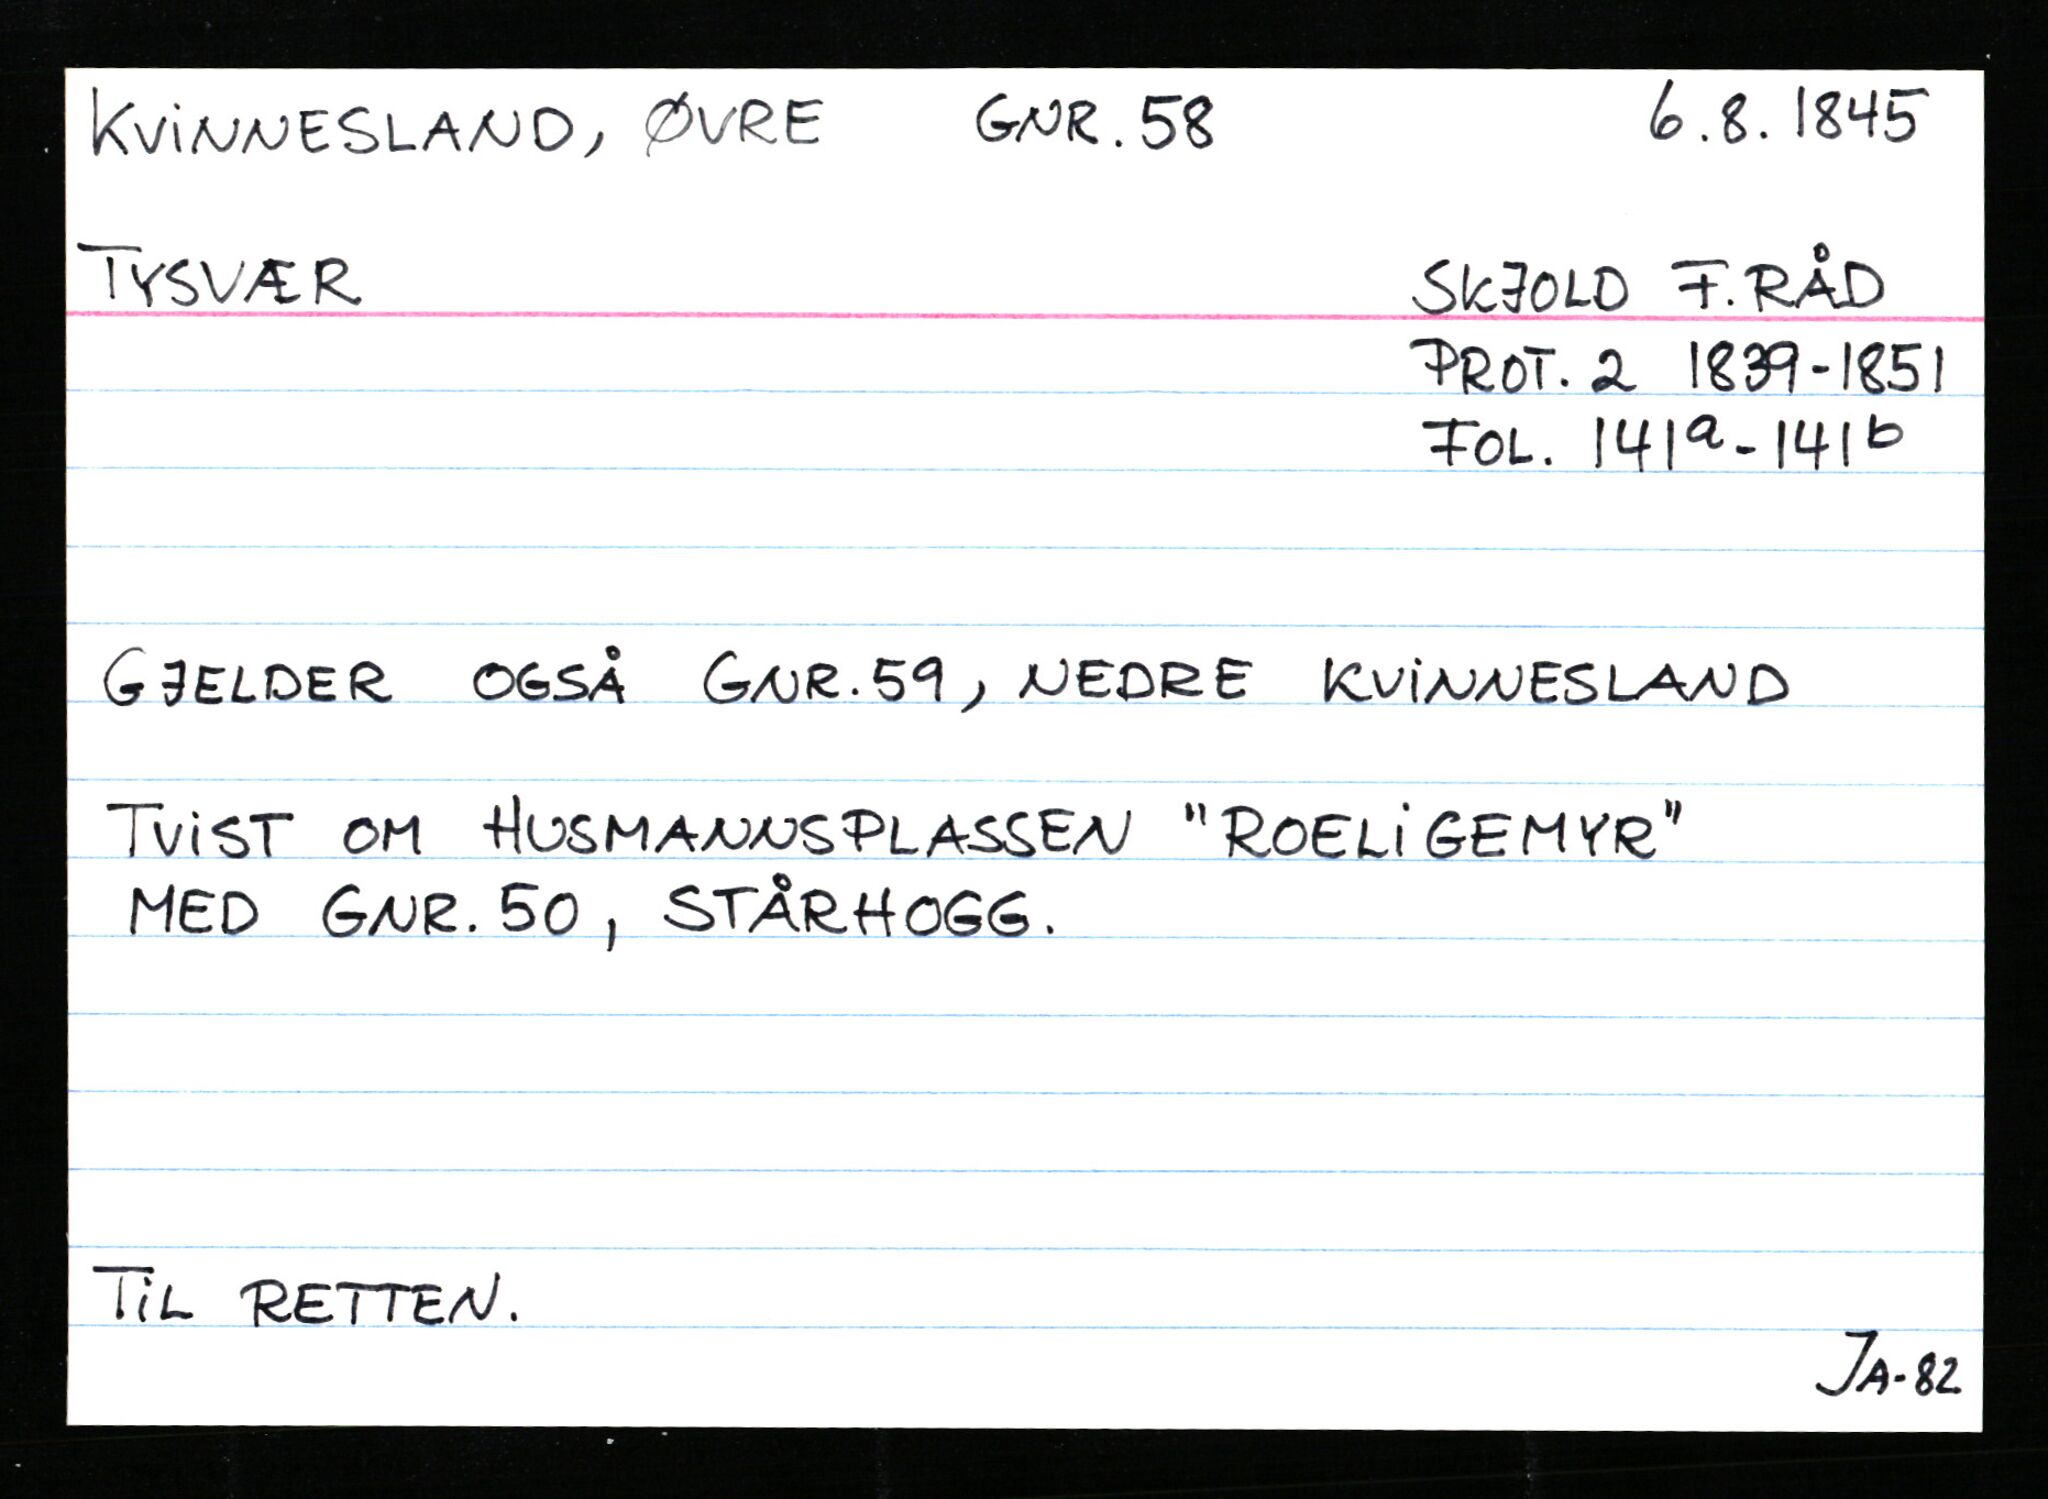 KVINNESLAND, ØVRE GNR. 58 6.8.1845
TYSVÆR SKJOLD F.RÅD
PROT. 2 1839-1851
FOL. 141a-141b
GJELDER OGSÅ GNR.59, NEDRE KVINNESLAND
TVIST OM HUSMANNSPLASSEN "ROELIGEMYR"
MED GNR. 50, STÅRHOGG.
TIL RETTEN.
JA-82